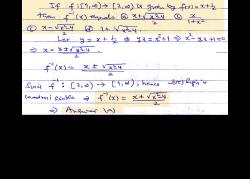 If f: [1, ∞) → [2, ∞) is given by f(x) = x + 1/x
then f⁻¹(x) equals (a) x + √x²-4 / 2 (b) x / 1+x²
(c) x - √x²-4 / 2 (d) 1 + √x²-4
Let y = x + 1/x ⇒ yx = x²+1 ⇒ x² - yx + 1 = 0
⇒ x = y ± √y²-4 / 2
f⁻¹(x) = x ± √x²-4 / 2
Since f⁻¹: [2, ∞) → [1, ∞), hence sign is
⇒ f⁻¹(x) = x + √x²-4 / 2
⇒ Answer (A)